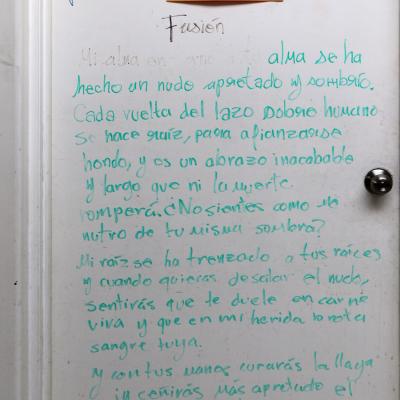 Fusión
Mi alma en a tu alma se ha
hecho un nudo apretado y sombrío.
Cada vuelta del lazo sobre humano
se hace raíz, para afianzarse
hondo, y es un abrazo inacabable
y largo que ni la muerte
romperá. ¿No sientes como me
nutro de tu misma sombra?
Mi raíz se ha trenzado a tus raíces
y cuando quieras desatar el nudo,
sentirás que te duele en carne
viva y que en mi herida brota
sangre tuya.
y con tus manos curarás la llaga
y ceñirás más apretado el